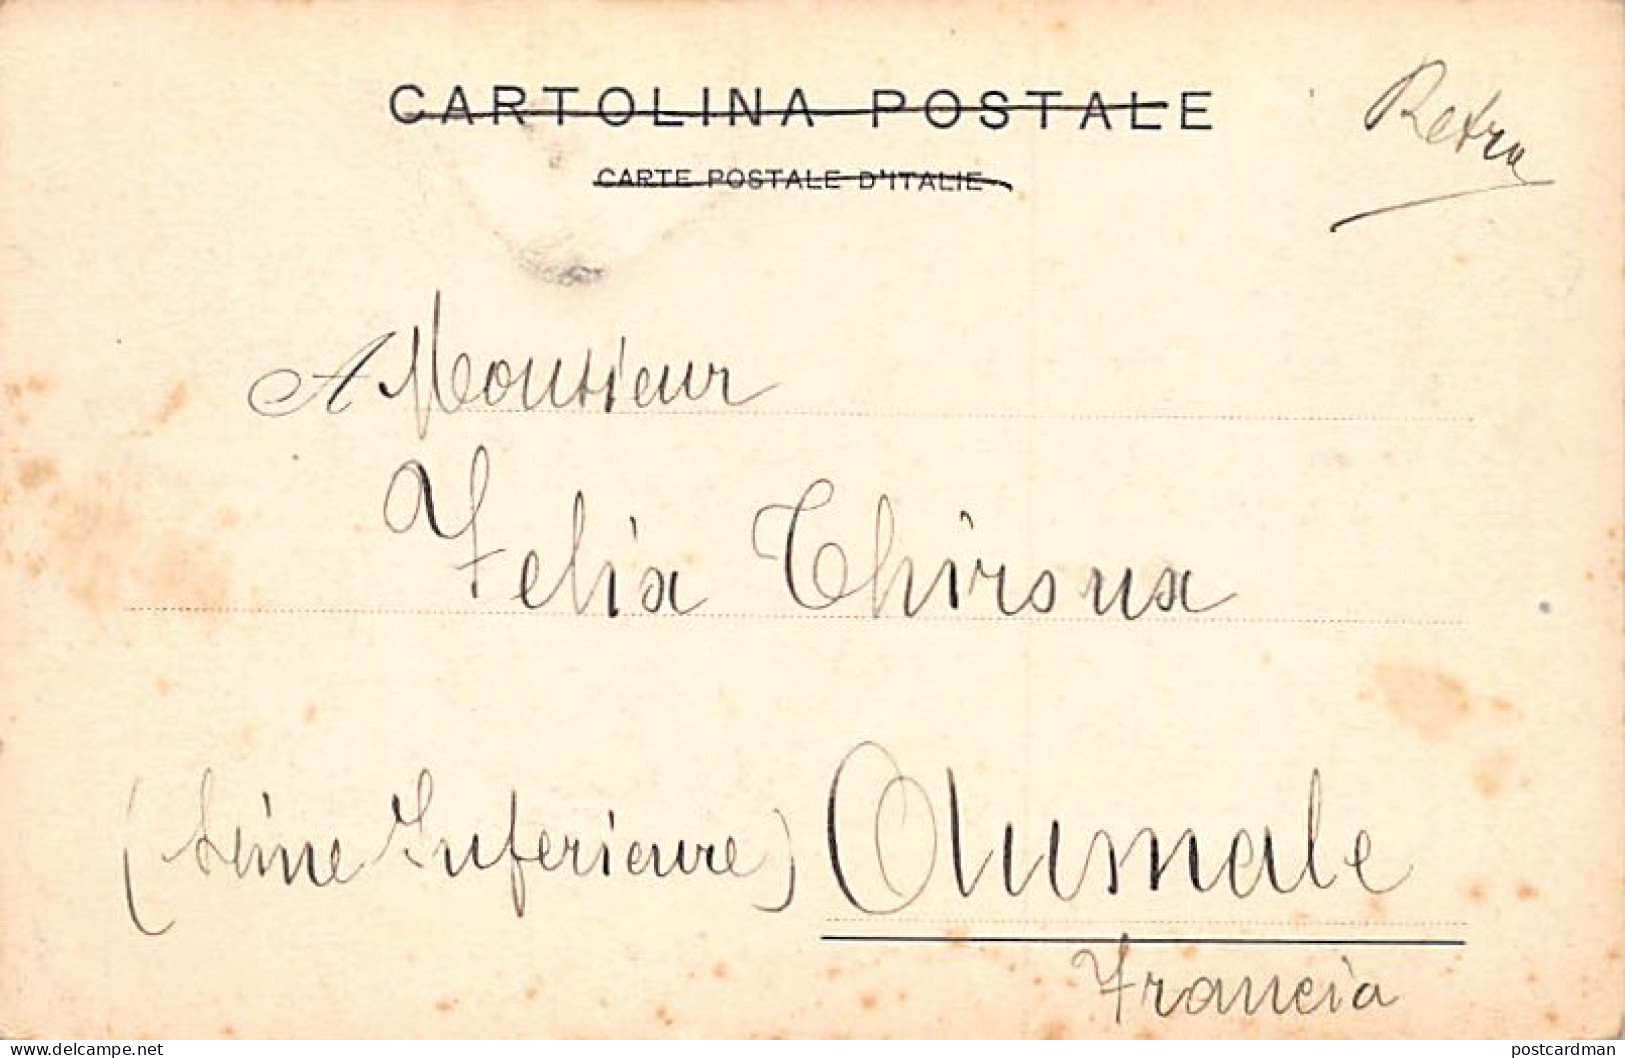 CARTOLINA POSTALE
CARTE POSTALE D'ITALIE
Retro
A Monsieur
Felix Thiroux
(Seine Inferieure) Aumale
Francia
delcampe.net
postcardman